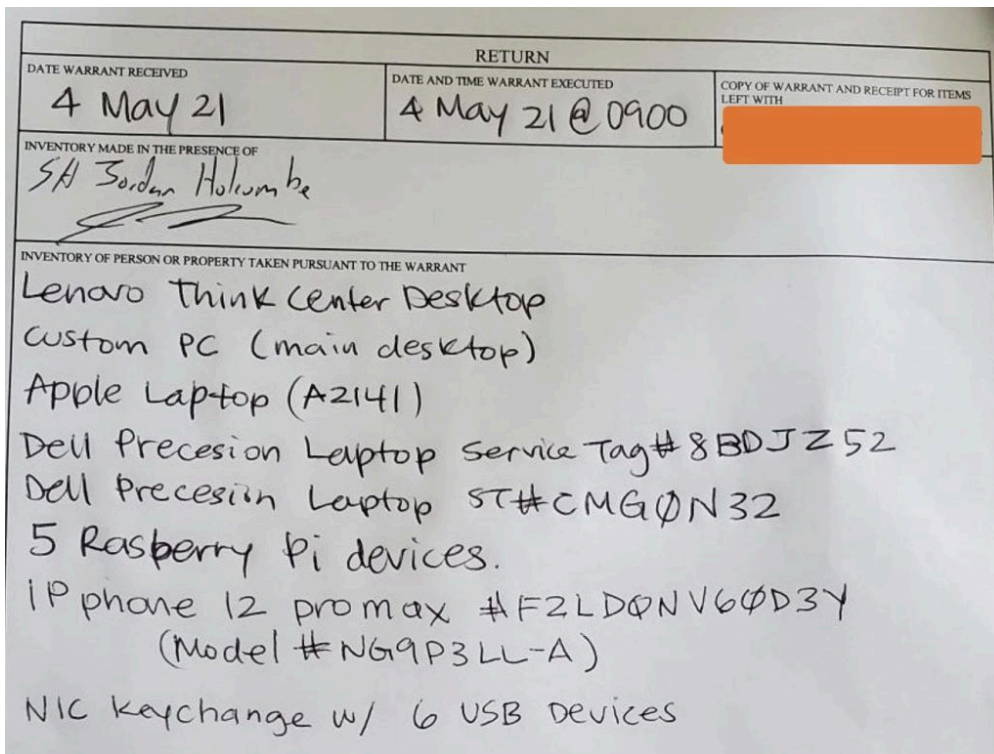 RETURN
DATE WARRANT RECEIVED
4 May 21
DATE AND TIME WARRANT EXECUTED
4 May 21 @ 0900
COPY OF WARRANT AND RECEIPT FOR ITEMS
LEFT WITH
INVENTORY MADE IN THE PRESENCE OF
SA Jordan Holcombe
INVENTORY OF PERSON OR PROPERTY TAKEN PURSUANT TO THE WARRANT
Lenovo Think Center Desktop
Custom PC (main desktop)
Apple Laptop (A2141)
Dell Precesion Laptop Service Tag# 8BDJZ52
Dell Precesion Laptop ST#CMG0N32
5 Rasberry Pi devices.
IPphone 12 pro max #F2LD0NV60D3Y
(Model # NG9P3LL-A)
NIC Keychange w/ 6 USB Devices